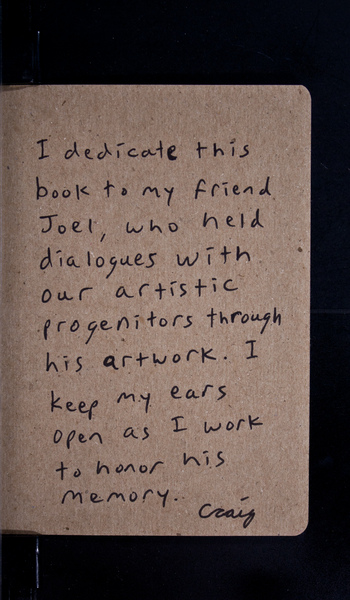 I dedicate this
book to my friend
Joel, who held
dialogues with
our artistic
progenitors through
his artwork. I
keep my ears
open as I work
to honor his
memory.
Craig